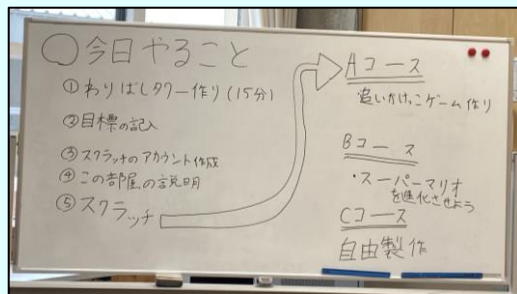 ○今日やること
①わりばしタワー作り(15分)
②目標の記入
③スクラッチのアカウント作成
④この部屋の説明
⑤スクラッチ
Aコース
追いかけっこゲーム作り
Bコース
・スーパーマリオ
を進化させよう
Cコース
自由製作